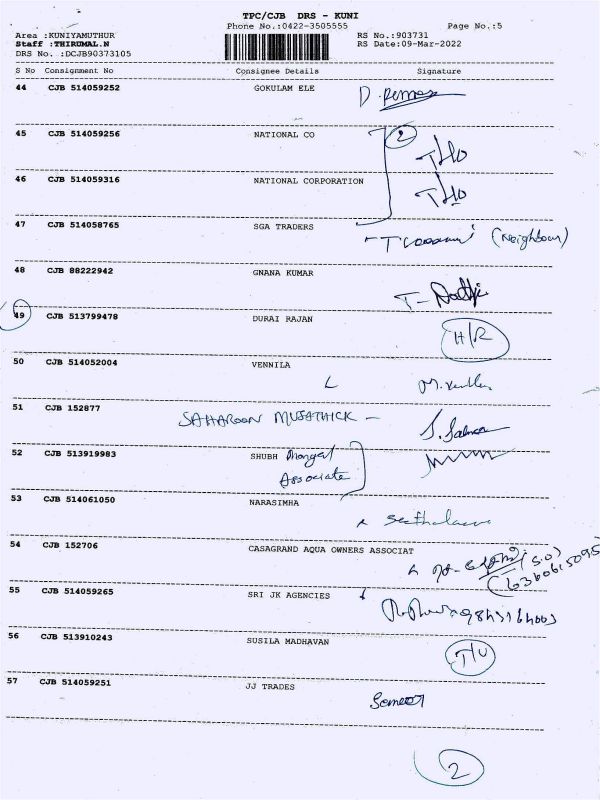 TPC/CJB DRS - KUNI
Phone No.:0422-3505555 Page No.:5
Area :KUNIYAMUTHUR RS No.:903731
Staff :THIRUMAL.N RS Date:09-Mar-2022
DRS No. :DCJB90373105
S No Consignment No Consignee Details Signature
44 CJB 514059252 GOKULAM ELE
45 CJB 514059256 NATIONAL CO 2
46 CJB 514059316 NATIONAL CORPORATION
47 CJB 514058765 SGA TRADERS (Neighbour)
48 CJB 88222942 GNANA KUMAR
49 CJB 513799478 DURAI RAJAN H/R
50 CJB 514052004 VENNILA
51 CJB 152877 SAHAROON MUSATHICK -
52 CJB 513919983 SHUBH Mangal
Associate
53 CJB 514061050 NARASIMHA
54 CJB 152706 CASAGRAND AQUA OWNERS ASSOCIAT (S.O)
55 CJB 514059265 SRI JK AGENCIES
56 CJB 513910243 SUSILA MADHAVAN T/U
57 CJB 514059251 JJ TRADES
2